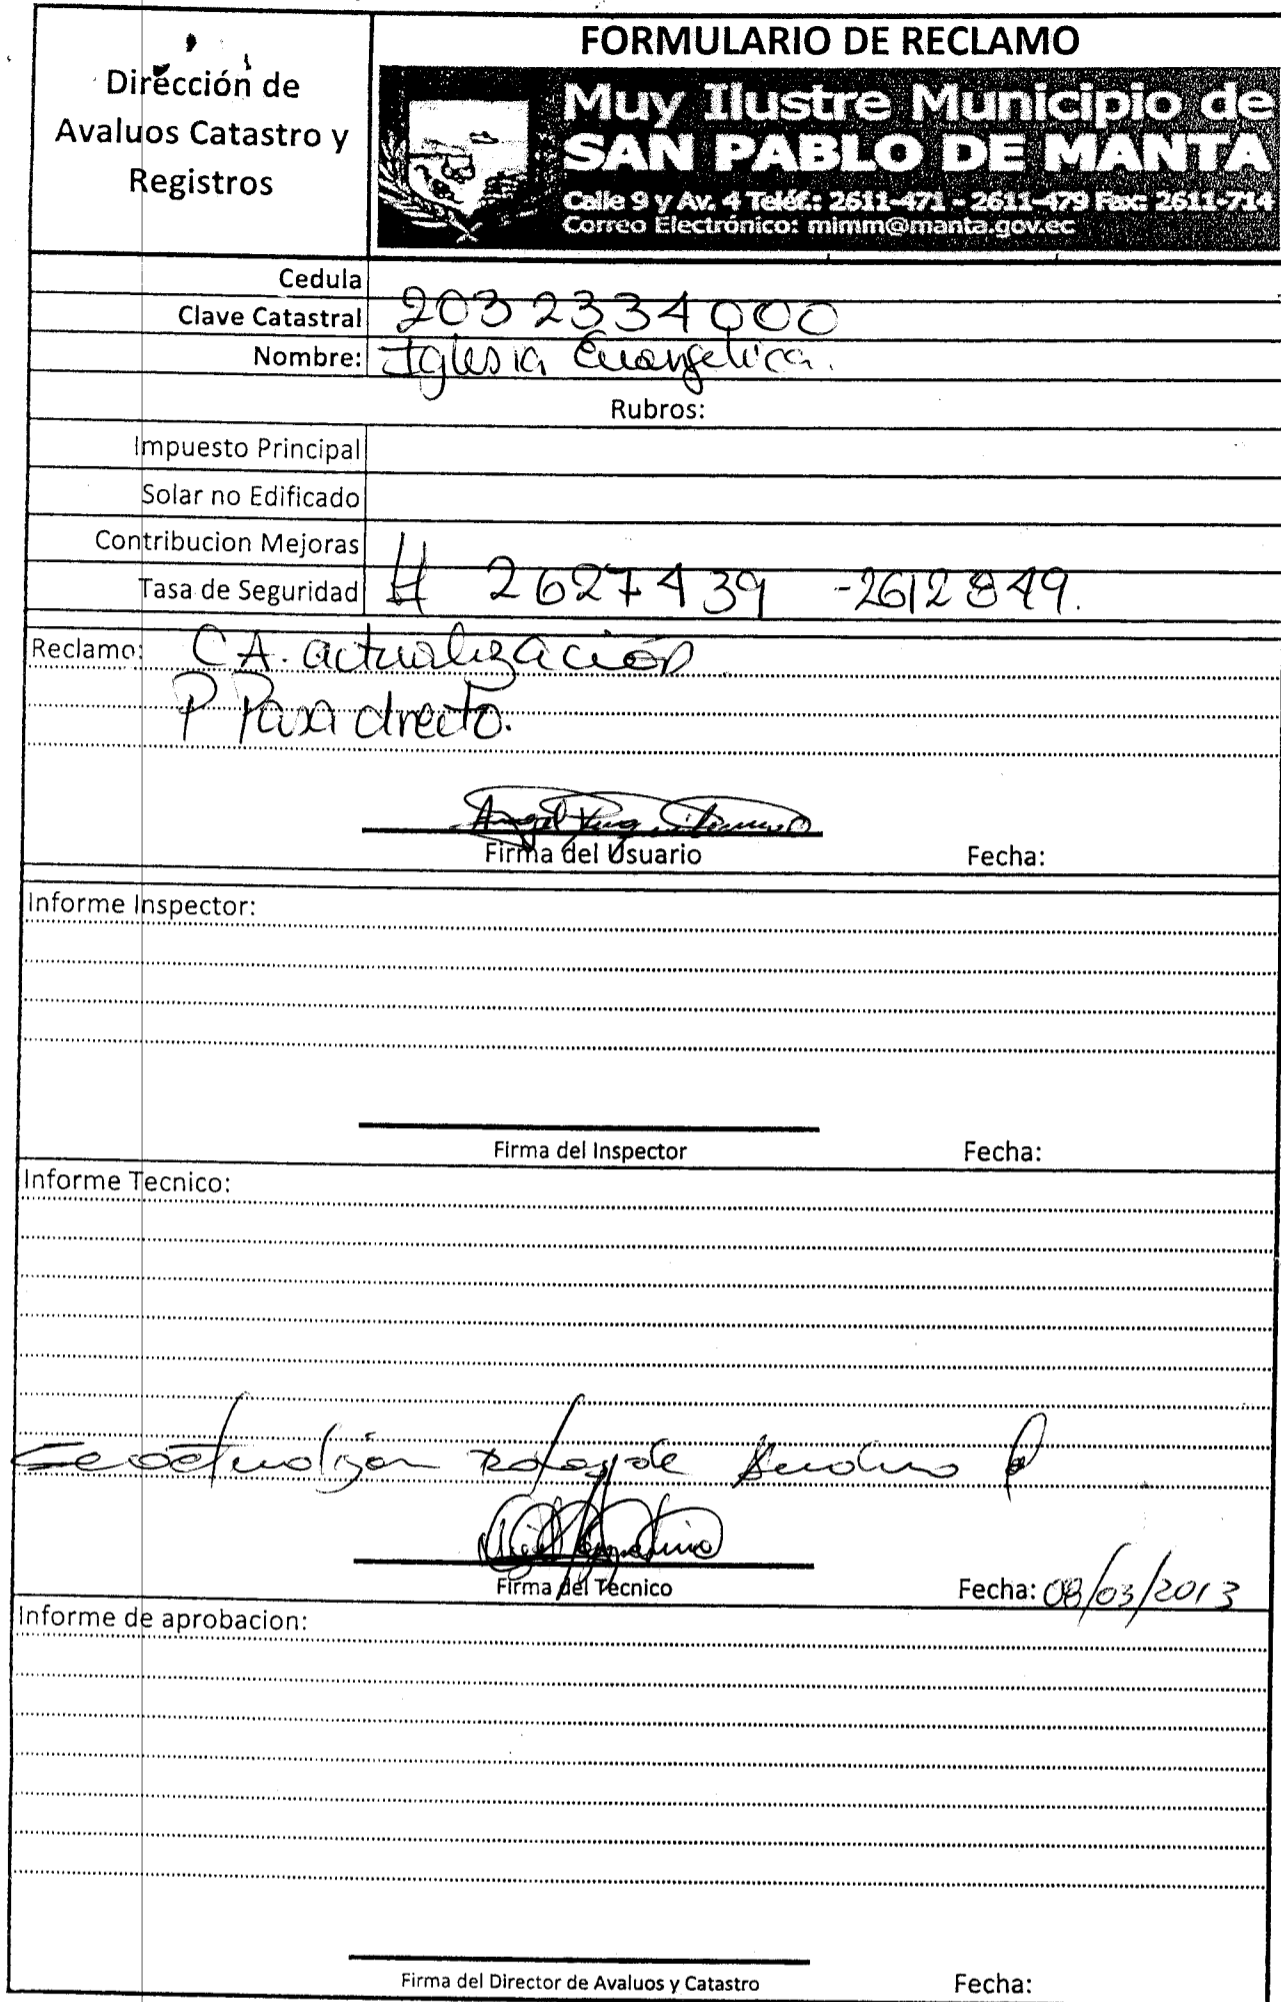 FORMULARIO DE RECLAMO
Dirección de
Avaluos Catastro y
Registros
Muy Ilustre Municipio de
SAN PABLO DE MANTA
Calle 9 y Av. 4 Teléf.: 2611-471 - 2611-479 Fax: 2611-714
Correo Electrónico: mimm@manta.gov.ec
Cedula
Clave Catastral 2032334000
Nombre: Iglesia Evangelica.
Rubros:
Impuesto Principal
Solar no Edificado
Contribucion Mejoras
Tasa de Seguridad # 2627439 -2612849.
Reclamo: CA. actualización
P Para directo.
Angel
Firma del Usuario Fecha:
Informe Inspector:
Firma del Inspector Fecha:
Informe Tecnico:
Firma del Tecnico Fecha: 08/03/2013
Informe de aprobacion:
Firma del Director de Avaluos y Catastro Fecha: